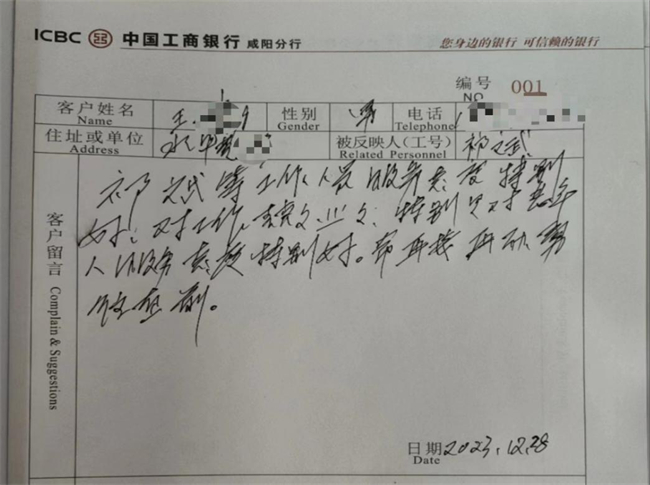 ICBC 中国工商银行 咸阳分行 您身边的银行 可信赖的银行
编号 NO 001
客户姓名 Name 王 性别 Gender 男 电话 Telephone
住址或单位 Address 被反映人(工号) Related Personnel 祁文斌
客户留言 Complain & Suggestions
祁文斌等工作人员服务态度特别
好;对工作 特别是对老年
人服务态度特别好。希再接再励
日期 Date 2023.12.28